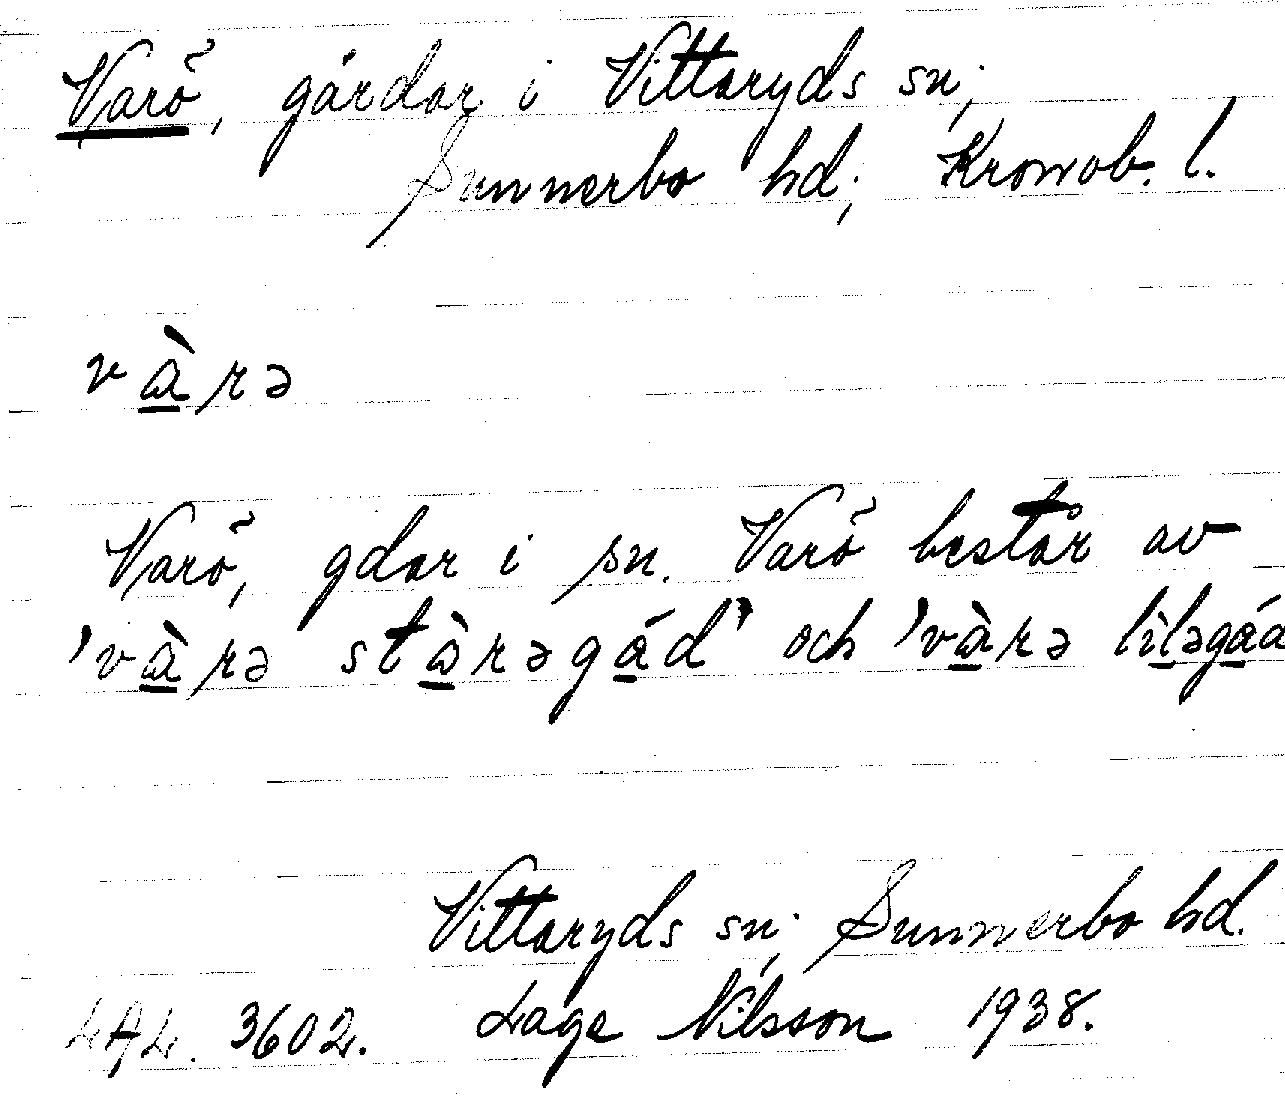 Varö, gårdar i Vittaryds sn;
Sunnerbo hd; Kronob. l.
và̱rə
Varö, gdar i sn. Varö består av
'và̱rə stò̱rəgá̱d' och 'và̱rə lìḻəgá̱d
Vittaryds sn; Sunnerbo hd.
LAL. 3602. Lage Nilsson 1938.